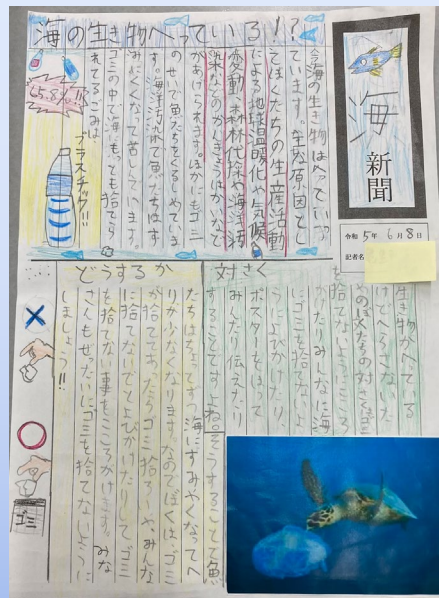 海の生き物へっている!?
海新聞
令和5年6月8日
記者名
今海の生き物はへっていっ
ています。主な原因とし
てぼくたちの生産活動
による地球温暖化や気候へ
んどう、森林伐採や海洋汚
染などのかんきょうはかいなど
があげられます。ほかにもゴミ
のせいで魚たちをくるしめていま
す。海洋汚染で魚たちはす
みにくくなって苦しんでいます。
ゴミの中で海でもっとも捨てら
れてるごみは、
プラスチック!!
65.8%!!
対さく
生き物がへっている
を捨てないようにこころ
がけたりみんなに海
にゴミを捨てないよ
うによびかけたり
ポスターをはって
みんなに伝えたり
することですよね。そうすることで魚
どうするか
たちはもとにす海にすみやくなってへ
りが少なくなります。なのでぼくは、ゴミ
が捨ててあったらゴミ拾いや、みんな
に捨てないでとよびかけたりして、ゴミ
を捨てない事をこころがけます。みな
さんもぜったいにゴミを捨てないように
しましょう!!
ゴミ